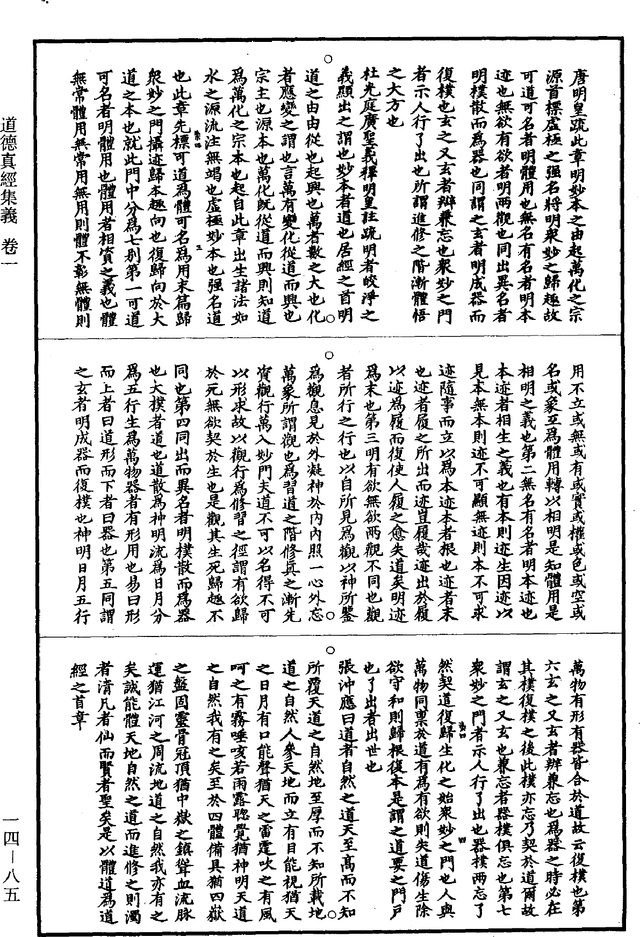 唐明皇疏此章明妙本之由起萬化之宗
源首標虛極之強名將明衆妙之歸趣故
可道可名者明體用也無名有名者明本
迹也無欲有欲者明兩觀也同出異名者
明樸散而爲器也同謂之玄者明成器而
復樸也玄之又玄者辨兼忘也衆妙之門
者示人行了出也所謂進修之階漸體悟
之大方也
杜光庭廣聖義釋明皇註疏明者皎淨之
義顯出之謂也妙本者道也居經之首明
道之由由從也起興也萬者數之大也化
者應變之謂也言萬有變化從道而興也
宗主也源本也萬化既從道而興則知道
爲萬化之宗本也起自此章出生諸法如
水之源流注無竭也虛極妙本也強名道
也此章先標可道爲體可名爲用末篇歸
衆妙之門攝迹歸本趣向也復歸向於大
道之本也就此門中分爲七別第一可道
可名者明體用也體用者相資之義也體
無常體用無常用無用則體不彰無體則
用不立或無或有或實或權或色或空或
名或象互爲體用轉以相明是知體用是
相明之義也第二無名有名者明本迹也
本迹者相生之義也有本則迹生因迹以
見本無本則迹不可顯無迹則本不可求
迹隨事而立以爲本迹本者根也迹者末
也迹者履之所出而迹豈履哉迹出於履
以迹爲履而復使人履之愈失道矣明迹
爲末也第三明有欲無欲兩觀不同也觀
者所行之行也以自所見爲觀以神所鑒
爲觀息見於外凝神於內內照一心外忘
萬象所謂觀也爲習道之階修眞之漸先
資觀行萬入妙門夫道不可以名得不可
以形求故以觀行爲修習之徑謂有欲歸
於元無欲契於生也是觀其生死歸趣不
同也第四同出而異名者明樸散而爲器
也大樸者道也道散爲神明流爲日月分
爲五行生爲萬物器者有形用也易曰形
而上者曰道形而下者曰器也第五同謂
之玄者明成器而復樸也神明日月五行
萬物有形有器皆合於道故云復樸也第
六玄之又玄者辨兼忘也爲器之時必在
其樸復樸之後此樸亦忘乃契於道爾故
謂玄之又玄也兼忘者器樸俱忘也第七
衆妙之門者示人行了出也器樸兩忘了
然契道復歸生化之始衆妙之門也人與
萬物同稟於道有爲有欲則失道傷生除
欲守和則歸根復本是謂之道要之門戶
也了出者出世也
張沖應曰道者自然之道天至高而不知
所覆天道之自然地至厚而不知所載地
道之自然人參天地而立有目能視猶天
之日月有口能聲猶天之雷霆吹之有風
呵之有霧唾咳若雨露聰覺猶神明天道
之自然我有之矣至於四體備具猶四嶽
之盤固靈骨冠頂猶中嶽之鎮聳血流脉
運猶江河之周流地道之自然我亦有之
矣誠能體天地自然之道而進修之則濁
者清凡者仙而賢者聖矣是以體道爲道
經之首章
道德真經集義 卷一
一四—八五